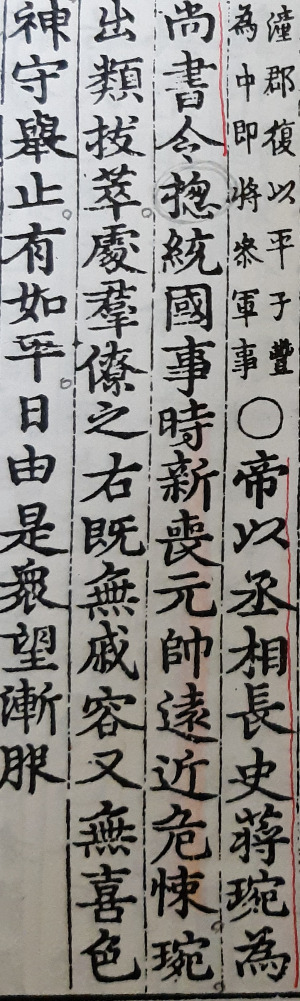 潼郡復以平子豐
為中即將叅軍事
○帝以丞相長史蔣琬為
尚書令揔統國事時新喪元帥遠近危悚琬
出類拔萃處羣僚之右既無戚容又無喜色
神守舉止有如平日由是衆望漸服